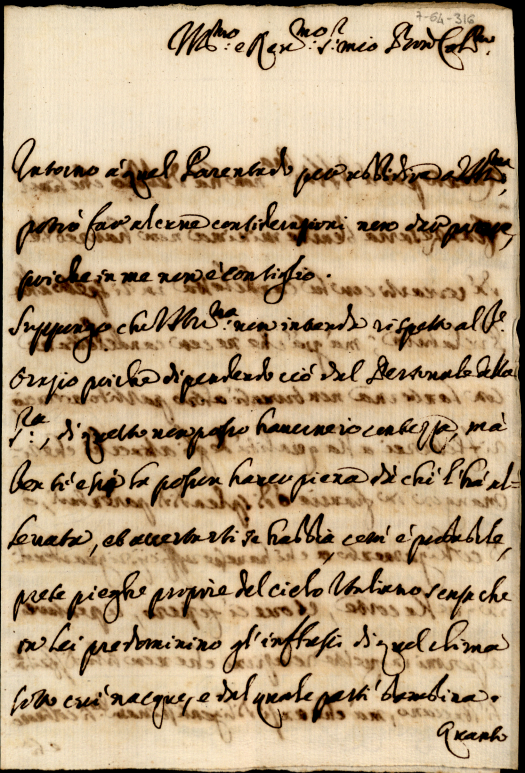 7-64-316
Ill.mo e Rev.mo S.r mio Pron Col.mo
Intorno à quel Parentado per ubbidire a V.S. Ill.ma,
potrò far alcune considerationi non dar parere,
poiche in me non è consiglio.
Suppongo che V.S. Ill.ma non intenda rispetto al S.r
Orazio poiche dipendendo ciò dal Personale della
S.ra, di questo non posso havere io contezza, mà
ben si essa la possa havere piena dà chi l'hà al=
levata, et accertarsi se habbia, come è probabile,
prese pieghe proprie del cielo Italiano senza che
in lei predominino gl'influssi di quel clima
sotto cui nacque, e dal quale partì bambina.
Quanto